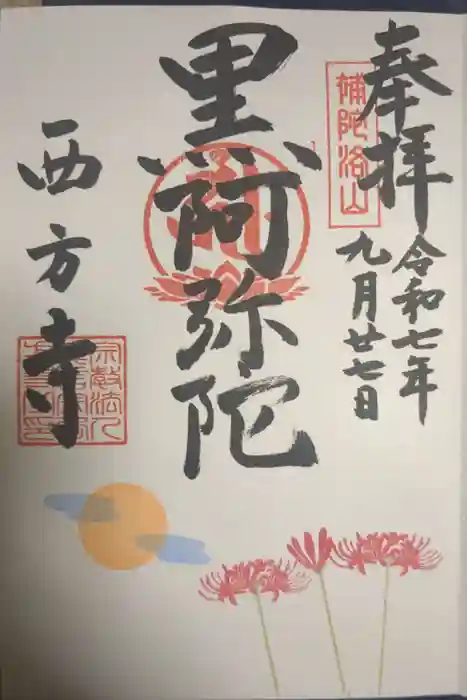 奉拝
補陀洛山
令和七年
九月廿七日
黒阿弥陀
西方寺
宗教法人